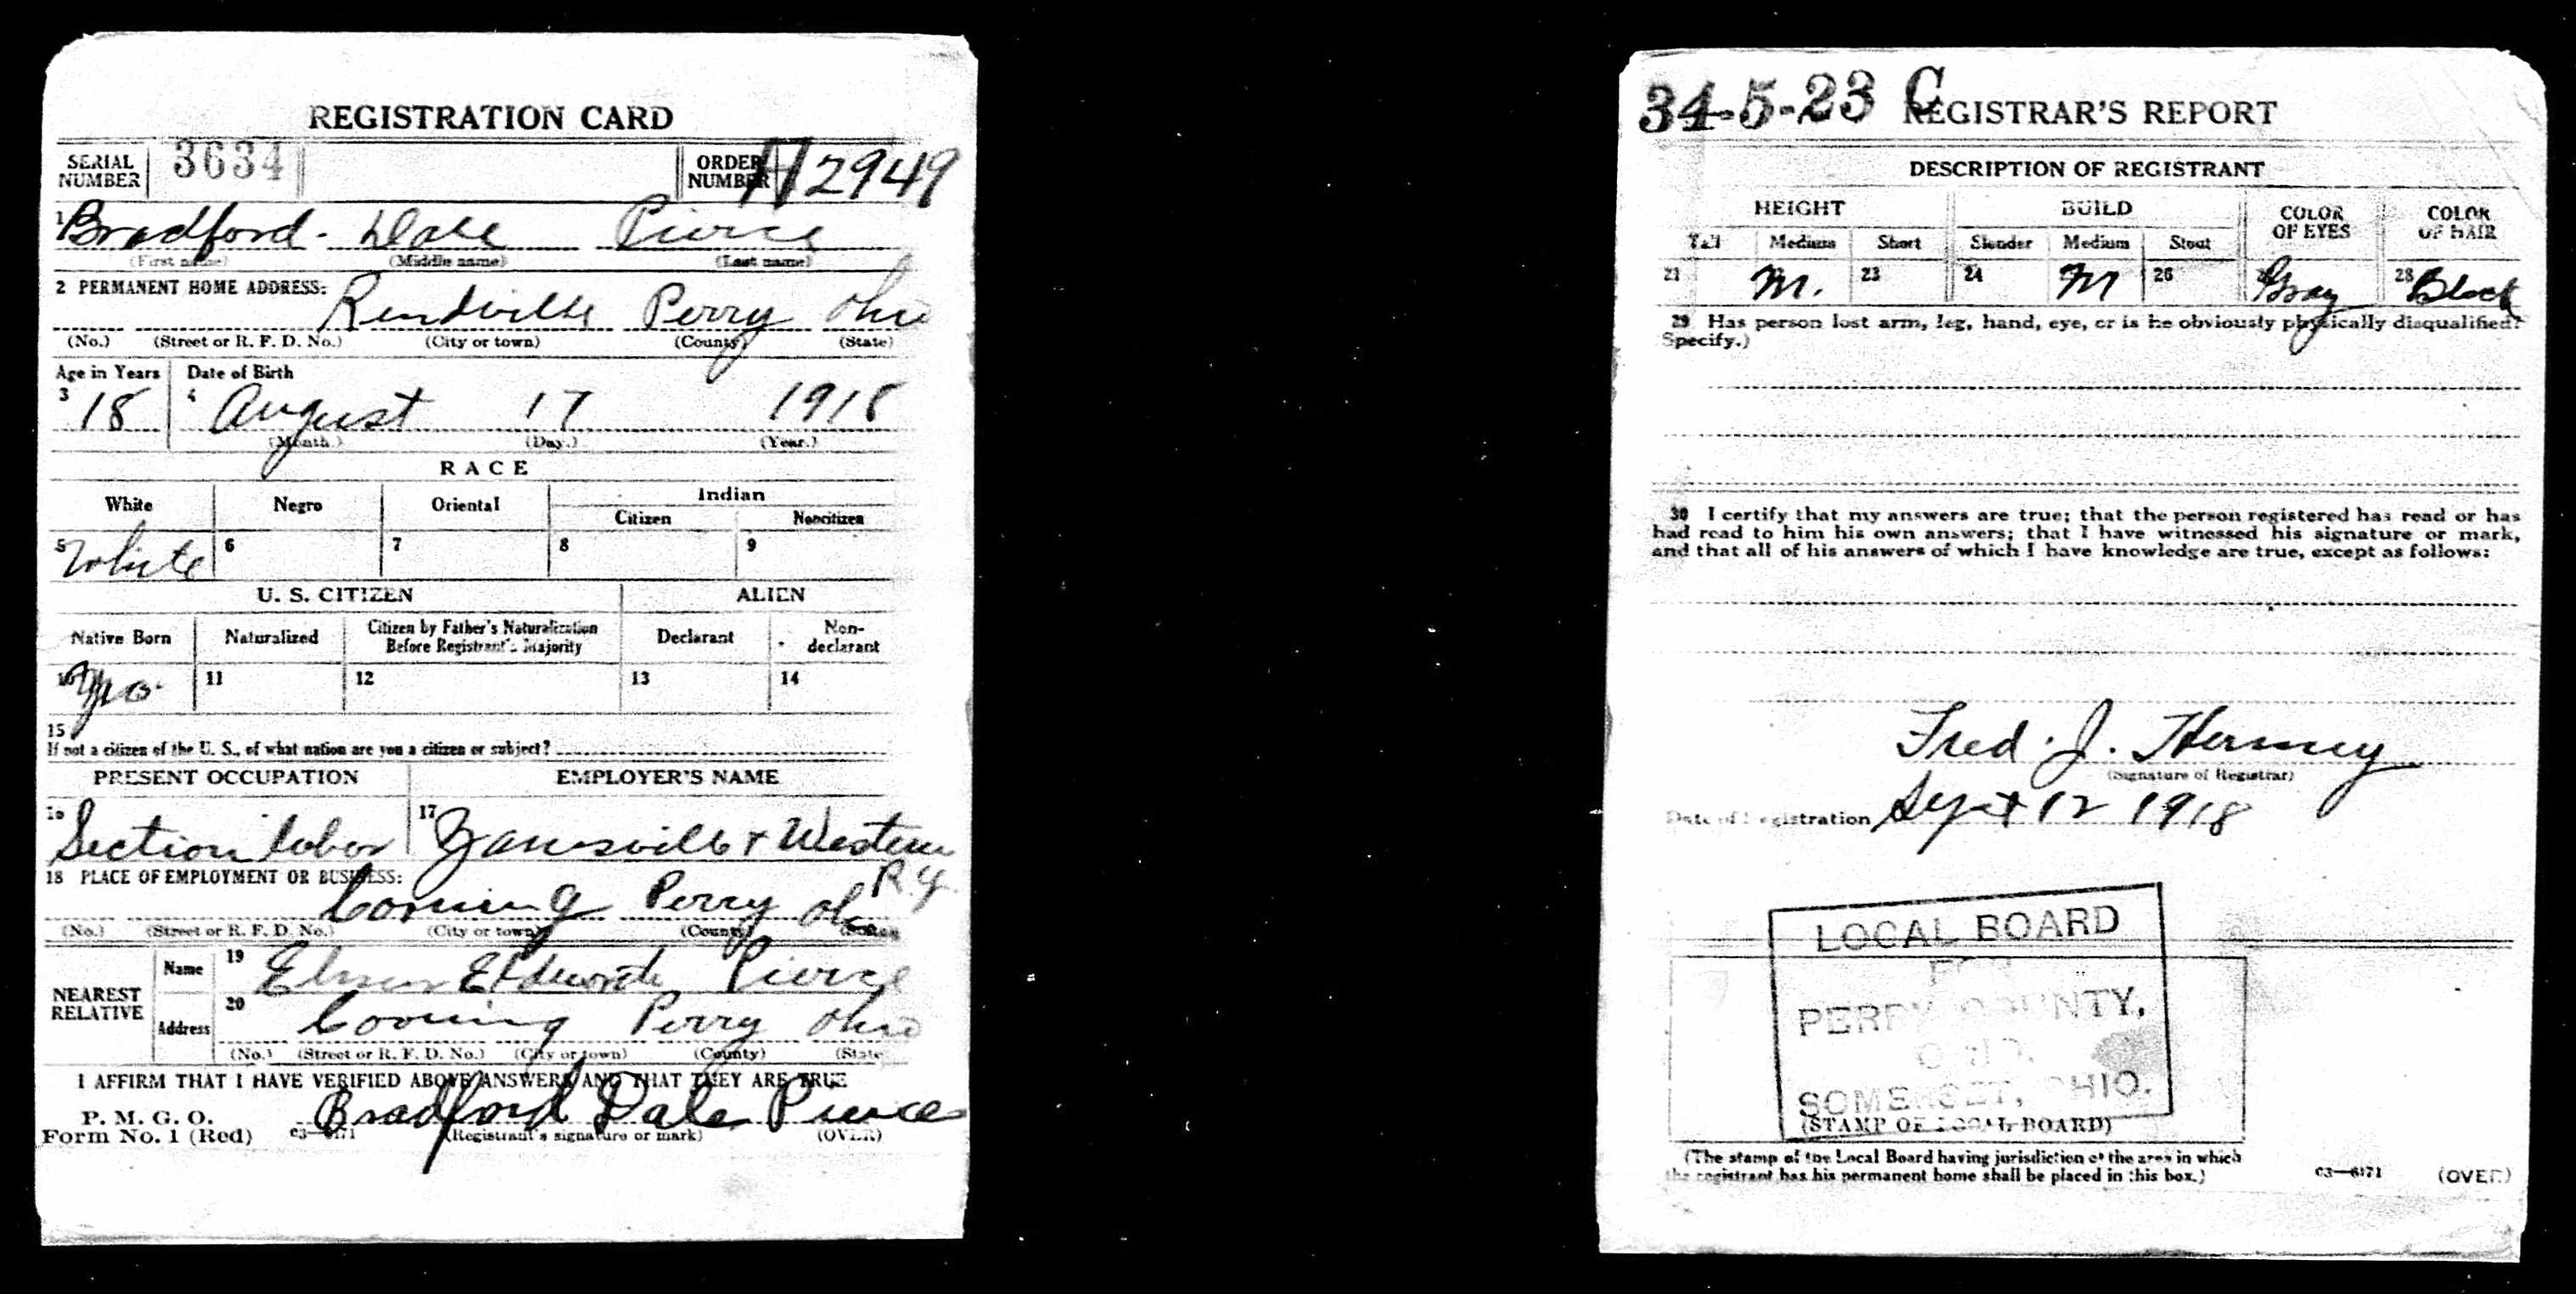 REGISTRATION CARD
SERIAL NUMBER 3634 ORDER NUMBER A2949
1 Bradford Dale Pierce
(First name) (Middle name) (Last name)
2 PERMANENT HOME ADDRESS: Rendville Perry Ohio
(No.) (Street or R. F. D. No.) (City or town) (County) (State)
Age in Years Date of Birth
3 18 4 August 17 1918
(Month.) (Day.) (Year.)
RACE
White Negro Oriental Indian
Citizen Noncitizen
5 White 6 7 8 9
U. S. CITIZEN ALIEN
Native Born Naturalized Citizen by Father's Naturalization Before Registrant's Majority Declarant Non-declarant
10 11 12 13 14
15
If not a citizen of the U. S., of what nation are you a citizen or subject?
PRESENT OCCUPATION EMPLOYER'S NAME
16 Section labor 17 Zanesville + Western
R.y.
18 PLACE OF EMPLOYMENT OR BUSINESS:
Corning Perry Ohio
(No.) (Street or R. F. D. No.) (City or town) (County) (State)
NEAREST RELATIVE
Name 19 Elmer Pierce
Address 20 Corning Perry Ohio
(No.) (Street or R. F. D. No.) (City or town) (County) (State)
I AFFIRM THAT I HAVE VERIFIED ABOVE ANSWERS AND THAT THEY ARE TRUE
P. M. G. O.
Form No. 1 (Red) c3—6171 Bradford Dale Pierce
(Registrant's signature or mark) (OVER)
34-5-23 C
REGISTRAR'S REPORT
DESCRIPTION OF REGISTRANT
HEIGHT BUILD COLOR OF EYES COLOR OF HAIR
Tall Medium Short Slender Medium Stout
21 M. 23 24 M 26 Gray 28 Black
29 Has person lost arm, leg, hand, eye, or is he obviously physically disqualified?
Specify.)
30 I certify that my answers are true; that the person registered has read or has
had read to him his own answers; that I have witnessed his signature or mark,
and that all of his answers of which I have knowledge are true, except as follows:
Fred. J.
(Signature of Registrar)
Date of Registration Sept 12 1918
LOCAL BOARD
FOR
PERRY COUNTY,
OHIO.
SOMERSET, OHIO.
(STAMP OF LOCAL BOARD)
(The stamp of the Local Board having jurisdiction of the area in which
the registrant has his permanent home shall be placed in this box.)
c3—6171 (OVER)